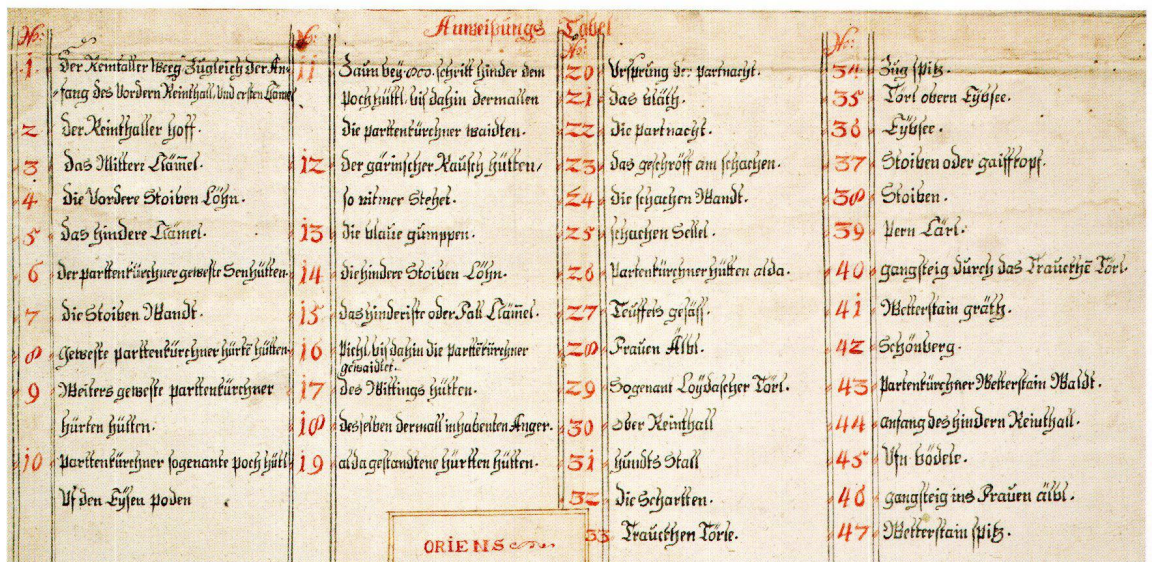 Anweisungs Tabel
No:
1 Der Reintaller Weeg Zugleich der An-
fang des Vordern Reinthall und ersten Clämel
2 der Reinthaller hoff.
3 das Mittere Clam̅el.
4 die Vordere Stoiben Löhn.
5 das hindere Clämel.
6 der parttenkürchner geweste Senhütten.
7 die Stoiben Wandt.
8 geweste parttenkürchner hürte hütten
9 Weiters geweste parttenkürchner
hürten hütten.
10 parttenkürchner sogenante poch hüttl
Uf den Eÿsen poden
No:
11 Zaun bey schritt hinder dem
pochhüttl, bis dahin dermallen
die parttenkürchner waidten.
12 der gärinscher Rausch hütten,
so nitmer Stehet.
13 die blaue gumppen.
14 die hindere Stoiben Löhn.
15 das hinderiste oder Fall Clam̅el.
16 Pichl, bis dahin die parttēkürchner
gewaidtet.
17 des Wittings hütten.
18 desselben dermall inhabenten Anger.
19 alda gestandtene hürtten hütten.
No:
20 Ursprung der partnacht.
21 das bläth.
22 die partnacht.
23 das geschröff am schachen.
24 die schachen Wandt.
25 schachen Settel.
26 Partenkürchner hütten alda.
27 Teuffels gesäss.
28 Frauen Älbl.
29 Sogenant Loÿdascher Törl.
30 ober Reinthall
31 hundts Stall
32 die Schartten.
33 Trauckhen Törle.
No:
34 Zug spitz.
35 Törl obern Eÿbsee.
36 Eÿbsee.
37 Stoiben oder gaisskopf.
38 Stoiben.
39 Pern Cärl.
40 gangsteig durch das Trauckhē Törl.
41 Wetterstain gräth.
42 Schönberg.
43 partenkürchner Wetterstain Waldt.
44 anfang des hindern Reinthall.
45 Ufn bödele.
46 gangsteig ins Frauen älbl.
47 Wetterstain spitz.
ORIENS